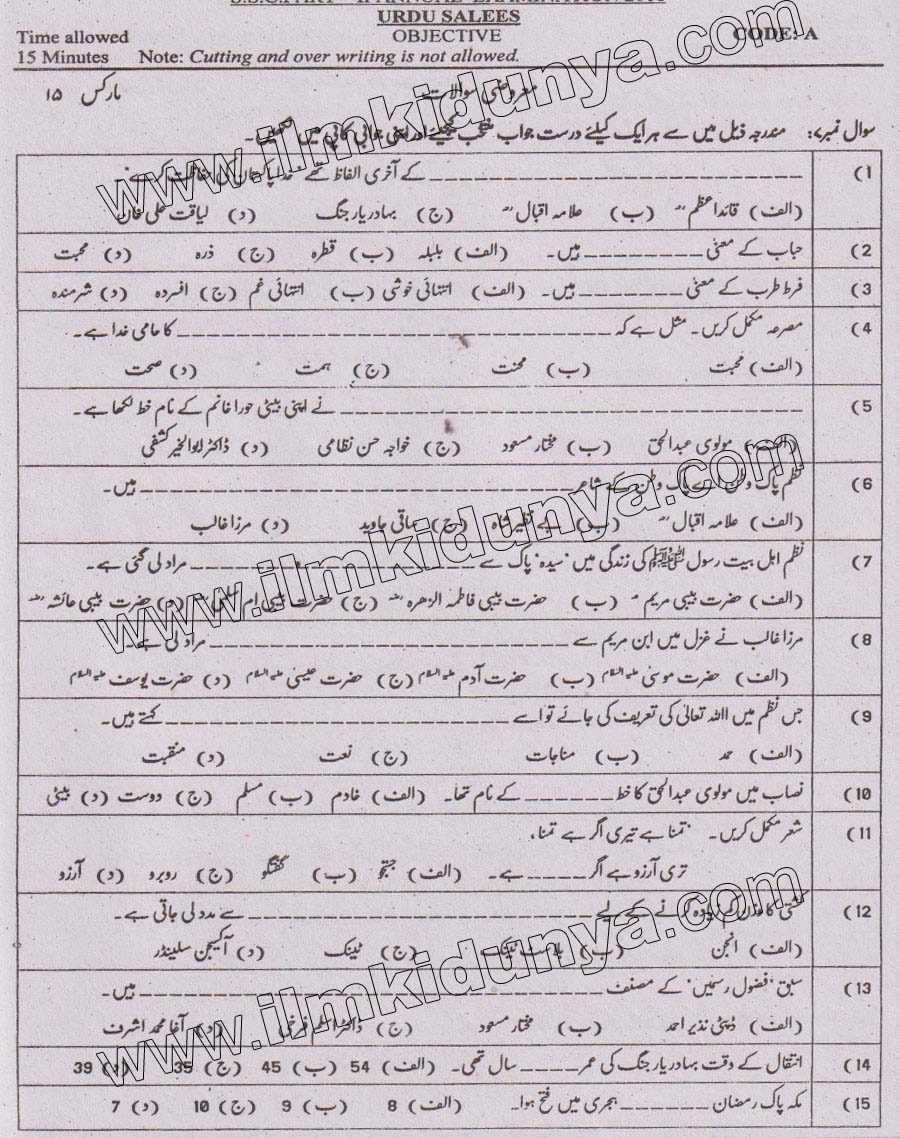 URDU SALEES
Time allowed OBJECTIVE CODE: A
15 Minutes Note: Cutting and over writing is not allowed.
معروضی سوالات مارکس ۱۵
سوال نمبر۷: مندرجہ ذیل میں سے ہر ایک کیلئے درست جواب منتخب کیجئے اور اپنی جوابی کاپی میں لکھیں۔
(1 ____________ کے آخری الفاظ تھے
(الف) قائداعظمؒ (ب) علامہ اقبالؒ (ج) بہادر یار جنگ (د) لیاقت علی خان
(2 حباب کے معنی _________ ہیں۔ (الف) بلبلہ (ب) قطرہ (ج) ذرہ (د) محبت
(3 فرط طرب کے معنی _________ ہیں۔ (الف) انتہائی خوشی (ب) انتہائی غم (ج) افسردہ (د) شرمندہ
(4 مصرعہ مکمل کریں۔ مثل ہے کہ ____________ کا حامی خدا ہے۔
(الف) محبت (ب) محنت (ج) ہمت (د) صحت
(5 ____________ نے اپنی بیٹی حورا خانم کے نام خط لکھا ہے۔
(الف) مولوی عبدالحق (ب) مختار مسعود (ج) خواجہ حسن نظامی (د) ڈاکٹر ابوالخیر کشفی
(6 نظم پاک وطن اے پاک وطن کے شاعر ____________ ہیں۔
(الف) علامہ اقبالؒ (ب) بے نظیر شاہ (ج) ساقی جاوید (د) مرزا غالب
(7 نظم اہل بیت رسول ﷺ کی زندگی میں 'سیدہ' پاک سے ____________ مراد لی گئی ہے۔
(الف) حضرت بیبی مریم (ب) حضرت بیبی فاطمہ الزھرہ (ج) حضرت بیبی ام سلمی (د) حضرت بیبی عائشہ
(8 مرزا غالب نے غزل میں ابن مریم سے ____________ مراد لی ہے۔
(الف) حضرت موسیٰ علیہ السلام (ب) حضرت آدم علیہ السلام (ج) حضرت عیسیٰ علیہ السلام (د) حضرت یوسف علیہ السلام
(9 جس نظم میں اللہ تعالیٰ کی تعریف کی جائے تو اسے ____________ کہتے ہیں۔
(الف) حمد (ب) مناجات (ج) نعت (د) منقبت
(10 نصاب میں مولوی عبدالحق کا خط _________ کے نام تھا۔ (الف) خادم (ب) مسلم (ج) دوست (د) بیٹی
(11 شعر مکمل کریں۔ 'تمنا ہے تیری اگر ہے تمنا،
تری آرزو ہے اگر ____ ہے۔ (الف) جستجو (ب) گفتگو (ج) روبرو (د) آرزو
(12 کشتی کا وزن کم زیادہ کرنے کے لیے ____________ سے مدد لی جاتی ہے۔
(الف) انجن (ب) بلاسٹ ٹینک (ج) ٹینک (د) آکسیجن سلینڈر
(13 سبق 'فضول رسمیں' کے مصنف ____________ ہیں۔
(الف) ڈپٹی نذیر احمد (ب) مختار مسعود (ج) ڈاکٹر اسلم فرخی (د) آغا محمد اشرف
(14 انتقال کے وقت بہادر یار جنگ کی عمر ____ سال تھی۔ (الف) 54 (ب) 45 (ج) 35 (د) 39
(15 مکہ پاک رمضان _______ ہجری میں فتح ہوا۔ (الف) 8 (ب) 9 (ج) 10 (د) 7
www.ilmkidunya.com
www.ilmkidunya.com
www.ilmkidunya.com